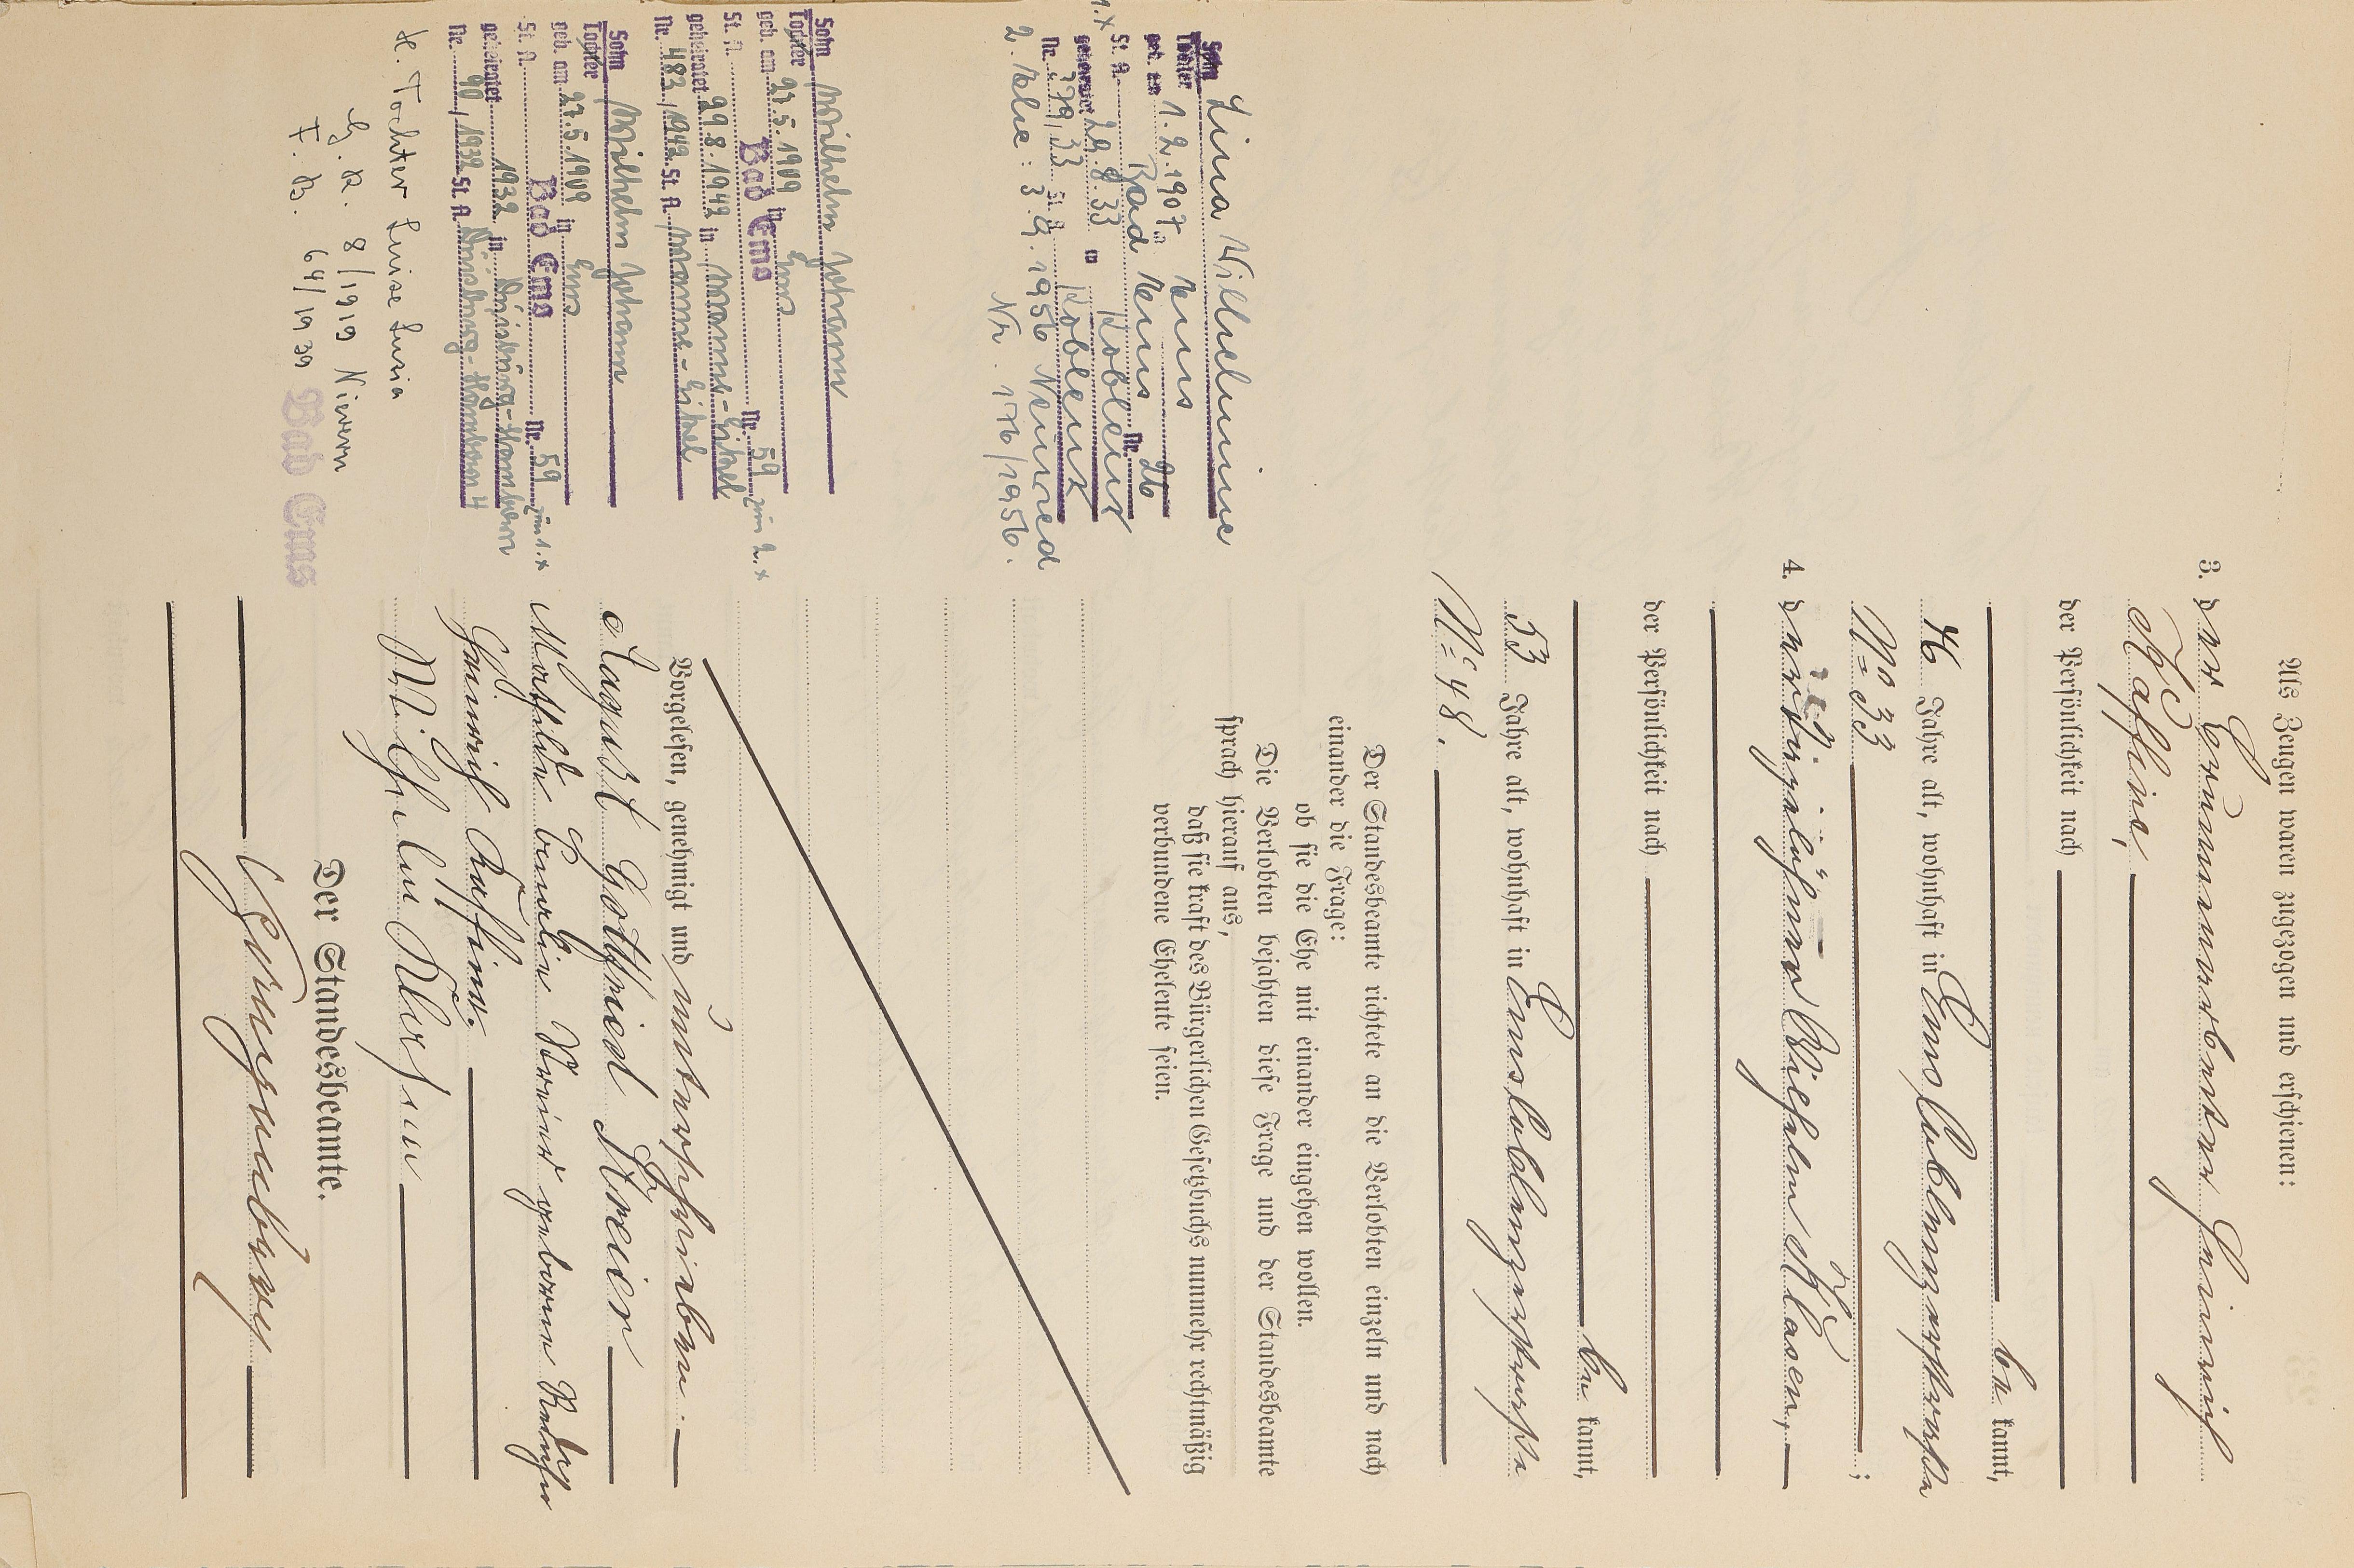 Als Zeugen waren zugezogen und erschienen:
3. der Heinrich
Kaffine,
der Persönlichkeit nach
be kannt,
46 Jahre alt, wohnhaft in Ems Coblenzerstrasse
No 33 ;
4. der Tagelöhner Wilhelm Klasen,
der Persönlichkeit nach
be kannt,
53 Jahre alt, wohnhaft in Ems Coblenzerstrasse
No 48.
Der Standesbeamte richtete an die Verlobten einzeln und nach
einander die Frage:
ob sie die Ehe mit einander eingehen wollen.
Die Verlobten bejahten diese Frage und der Standesbeamte
sprach hierauf aus,
daß sie kraft des Bürgerlichen Gesetzbuchs nunmehr rechtmäßig
verbundene Eheleute seien.
Vorgelesen, genehmigt und unterschrieben.
August Gottfried Kreier
Kreier geborene
Heinrich Kaffine.
Wilhelm Klasen
Der Standesbeamte.
Lina Wilhelmine
Sohn
Tochter
geb. am 1.2.1907 in Ems
St. A. Bad Ems Nr. 26
geheiratet 29.8.33 in Koblenz
Nr. 379/33 St. A. Koblenz
1.x
2. Ehe: 3.9.1956 Neuwied
Nr. 176/1956.
Sohn
Tochter Wilhelm Johann
geb. am 27.5.1909 in Ems
St. A. Bad Ems Nr. 59 zum 2. x
geheiratet 29.8.1942 in Wanne-Eickel
Nr. 483/1942 St. A. Wanne-Eickel
Sohn
Tochter Wilhelm Johann
geb. am 27.5.1909 in Ems
St. A. Bad Ems Nr. 59 zum 1. x
geheiratet 1932 in Duisburg-Hamborn
Nr. 90/1932 St. A. Duisburg-Hamborn
Tochter Luise Luzia
G. R. 8/1919 Nievern
F. B. 64/1939
Bad Ems